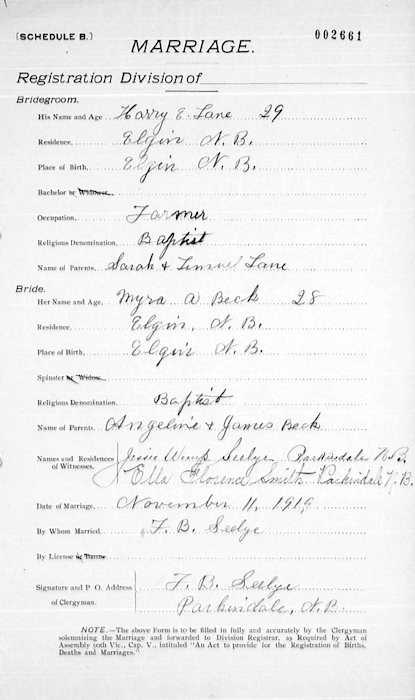 [SCHEDULE B.]
002661
MARRIAGE.
Registration Division of
Bridegroom.
His Name and Age Harry E. Lane 29
Residence, Elgin N.B.
Place of Birth, Elgin N.B.
Bachelor or Widower,
Occupation, Farmer
Religious Denomination, Baptist
Name of Parents, Sarah & Lemuel Lane
Bride.
Her Name and Age, Myra A Beck 28
Residence Elgin, N.B.
Place of Birth, Elgin N.B.
Spinster or Widow,
Religious Denomination. Baptist
Name of Parents, Angeline & James Beck
Names and Residences of Witnesses, Jessie Seelye Parkindale N.B.
Ella Florence Smith Parkindale N.B.
Date of Marriage, November 11, 1919
By Whom Married, F. B. Seelye
By License or Banns
Signature and P. O. Address of Clergyman. F. B. Seelye
Parkindale, N.B.
NOTE.—The above Form is to be filled in fully and accurately by the Clergyman
solemnizing the Marriage and forwarded to Division Registrar, as Required by Act of
Assembly 50th Vic., Cap. V., intituled "An Act to provide for the Registration of Births,
Deaths and Marriages."